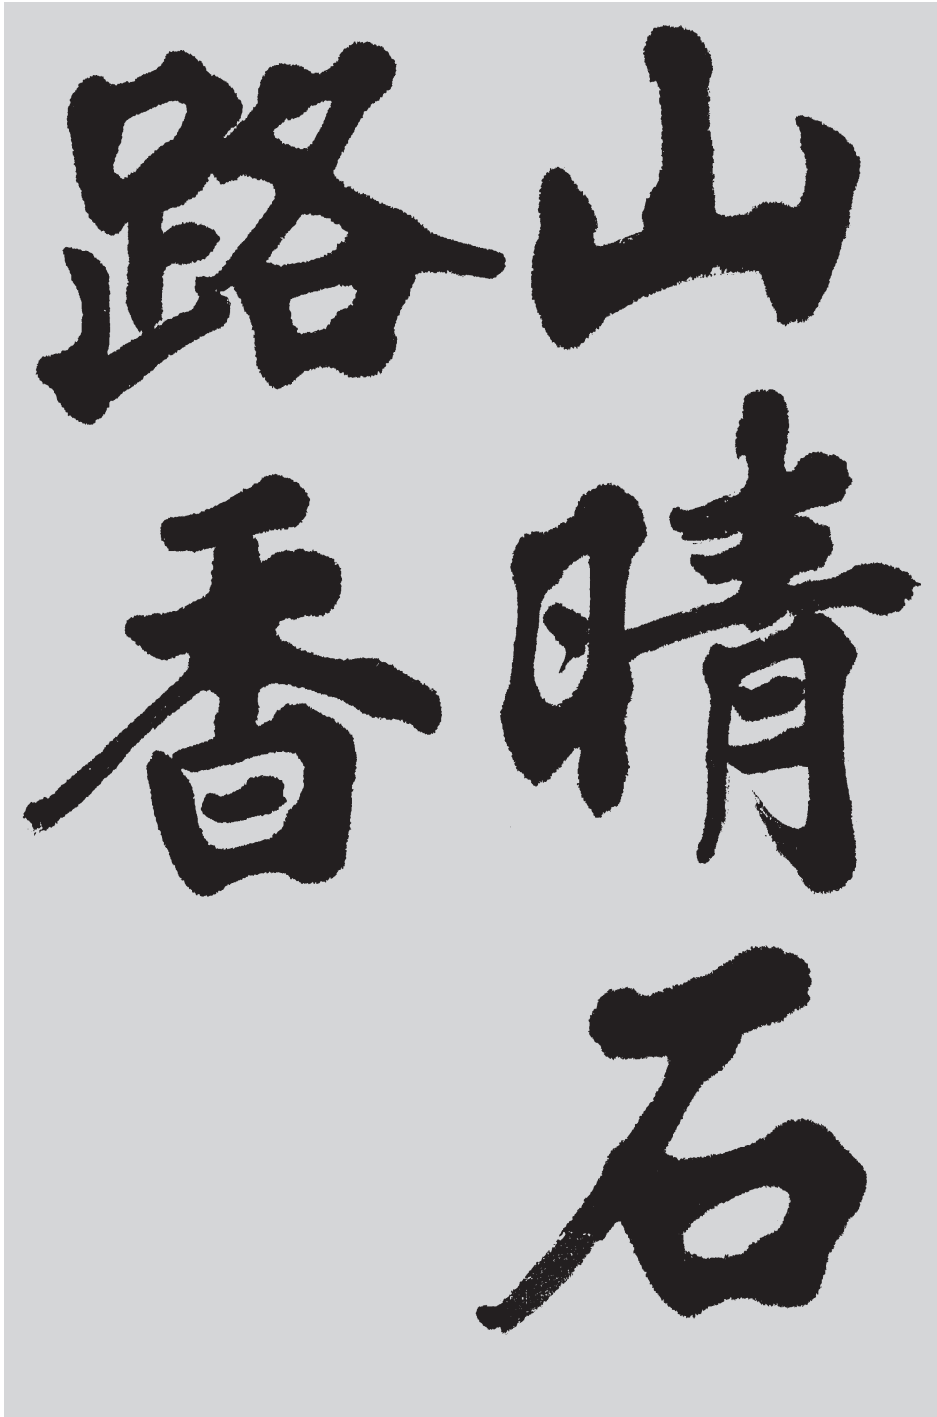 山晴石
路香